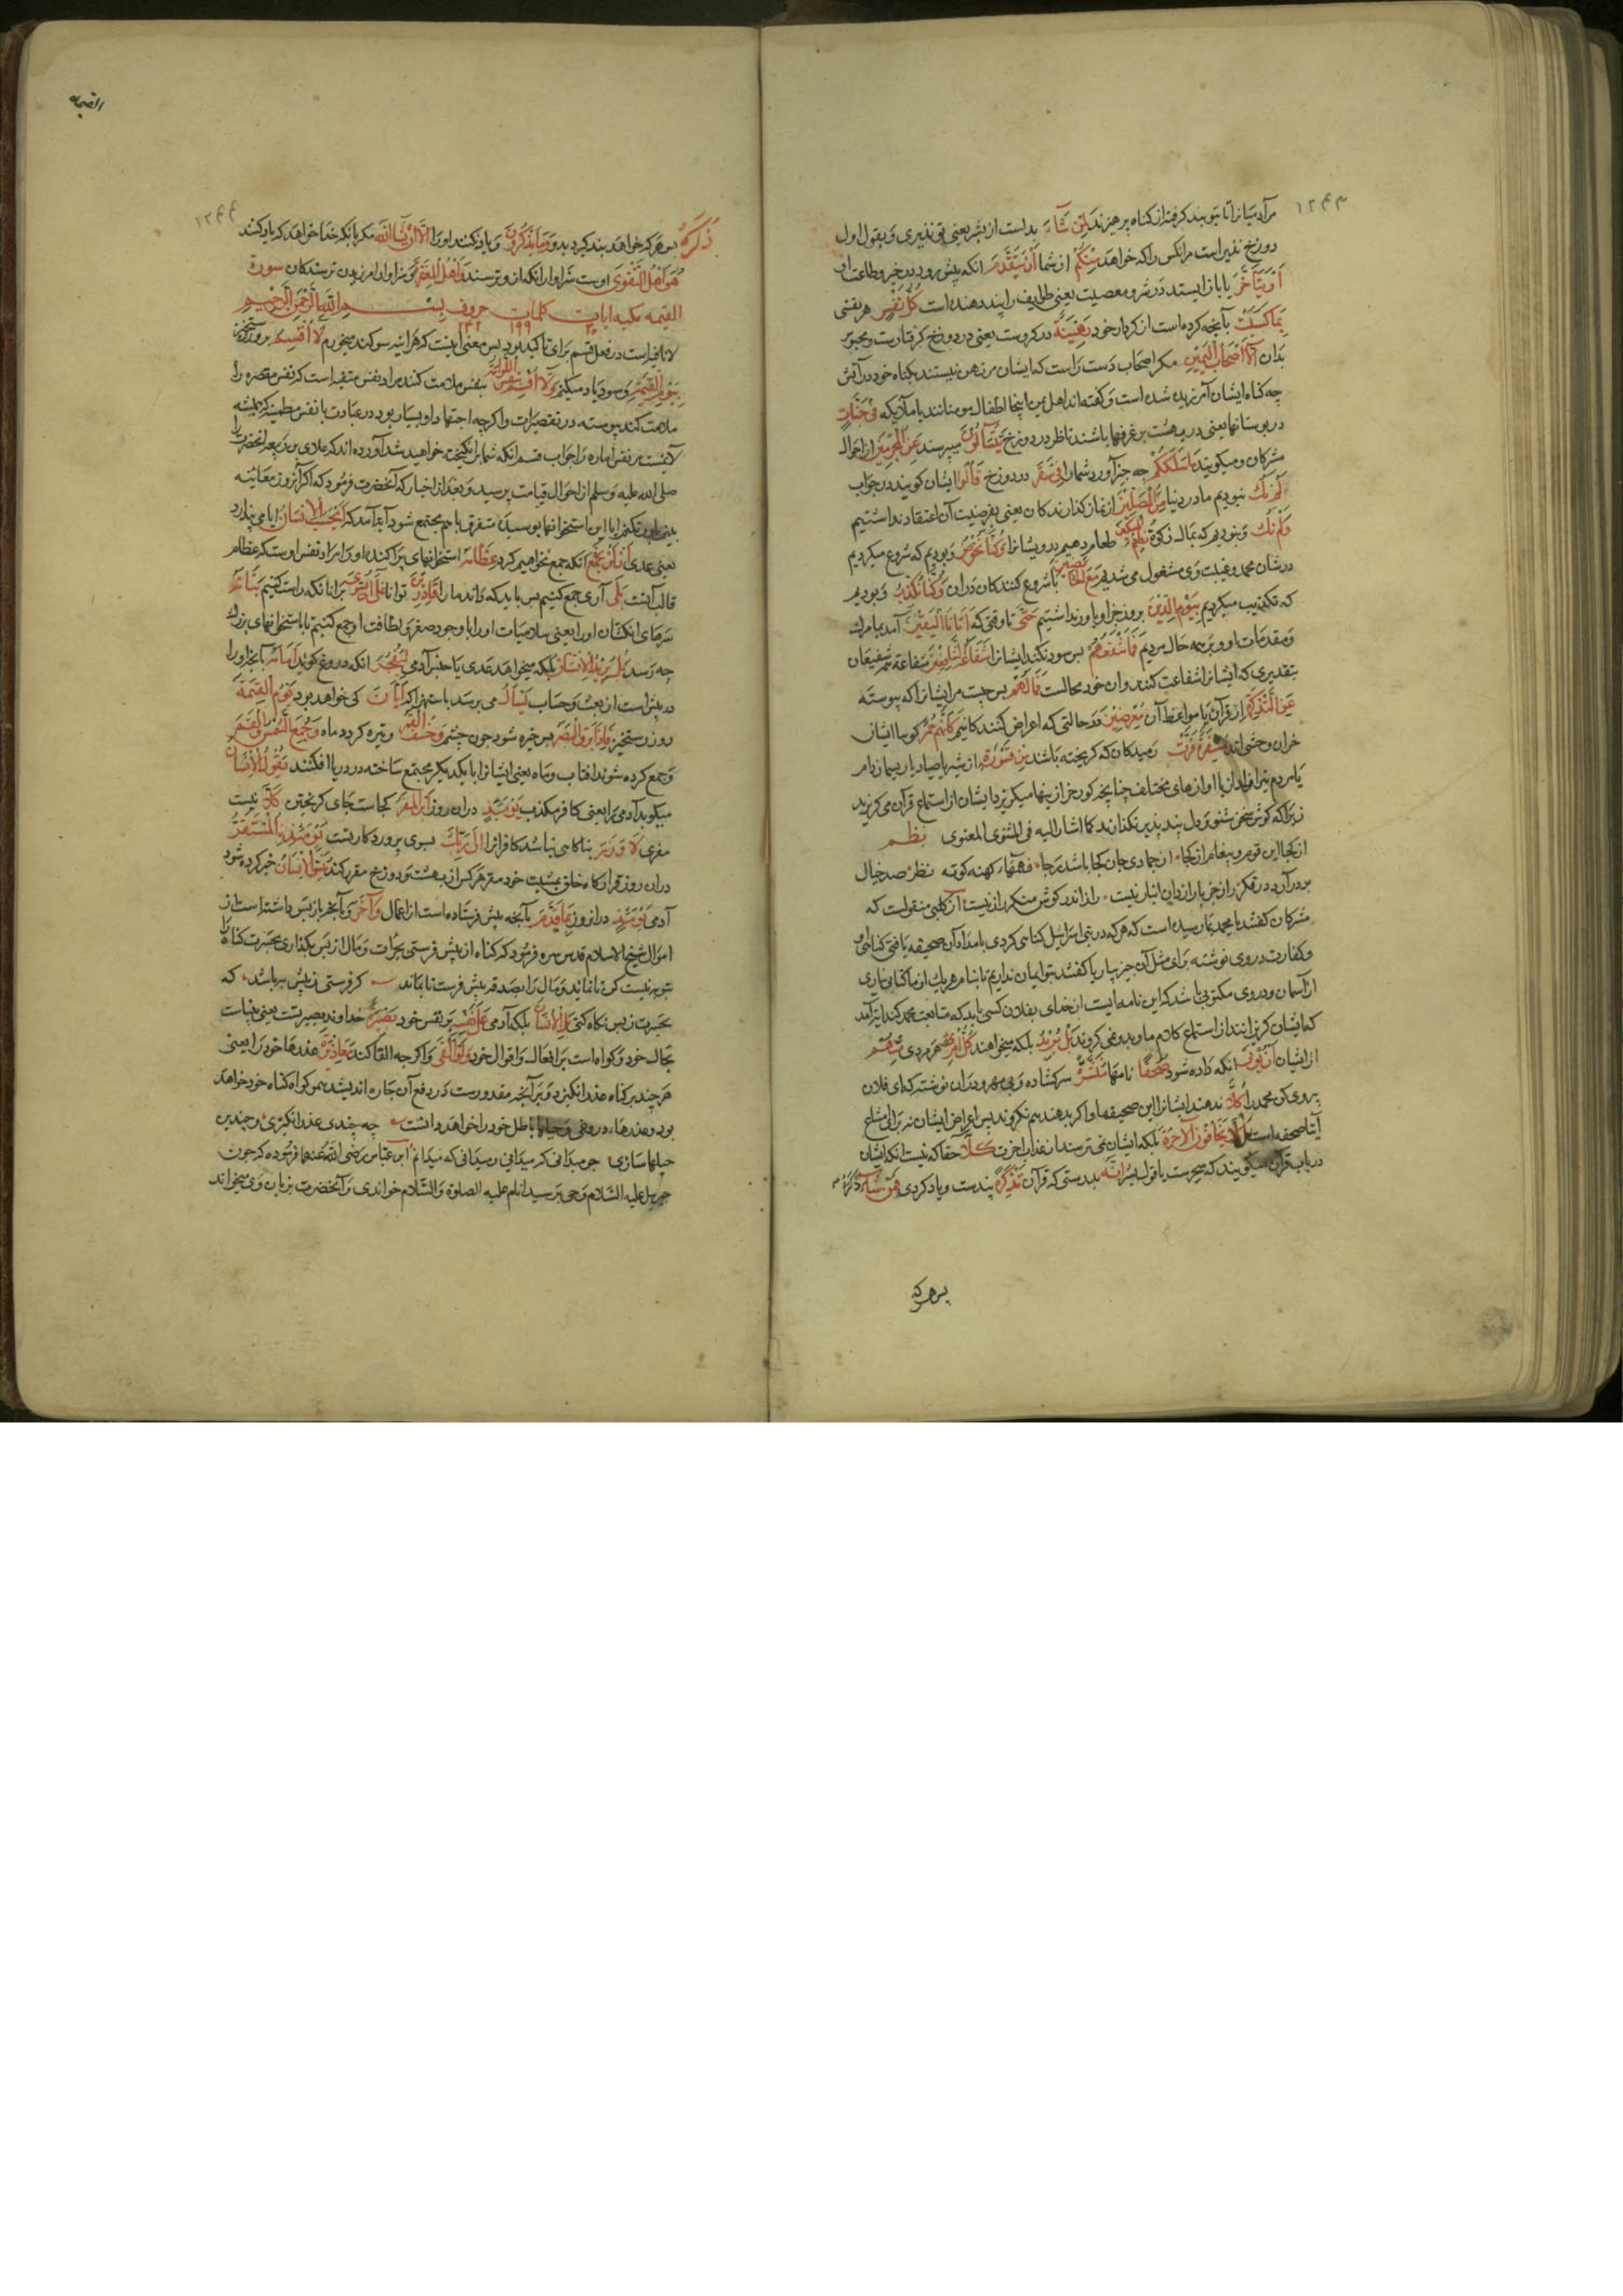 ۱۲۴۳
مر آدمیانرا تا بتو پند کرفته از کناه بپرهیزند لِمَنْ شَآءَ بدل است از بشر یعنی تو نذیری و بقول اول
دوزخ نذیر است مر انکس را که خواهد مِنْکُمْ از شما اَنْ یَتَقَدَّمَ انکه پیش رود در خیر و طاعت
اَوْ یَتَاَخَّرَ یا باز ایستد در شر و معصیت یعنی طوایف را پند دهنده است کُلُّ نَفْسٍ هر نفسی
بِمَا کَسَبَتْ بآنچه کرده است از کردار خود رَهِینَةٌ در کروست یعنی در دوزخ کرفتارست و محبوس
بدان اِلَّا اَصْحَابَ الْیَمِینِ مکر اصحاب دست راست که ایشان مرتهن نیستند بکناه خود در آتش
چه کناه ایشان آمرزیده شده است و کفته اند اهل یمین اینجا اطفال مومنانند یا ملائکه فِی جَنَّاتٍ
در بوستانها یعنی در بهشت بر غرفها باشند ناظر در دوزخ یَتَسَآءَلُونَ میپرسند عَنِ الْمُجْرِمِینَ از احوال
مشرکان و میکویند مَا سَلَکَکُمْ چه چیز آورد شمارا فِی سَقَرَ در دوزخ قَالُوا ایشان کویند در جواب
لَمْ نَکُ نبودیم ما در دنیا مِنَ الْمُصَلِّینَ از نماز کذارندکان یعنی بفرضیت آن اعتقاد نداشتیم
وَلَمْ نَکُ و نبودیم که بمال زکوة نُطْعِمُ الْمِسْکِینَ طعام دهیم درویشانرا وَکُنَّا نَخُوضُ و بودیم که شروع میکردیم
در شان محمد و غیبت وی مشغول می شدیم مَعَ الْخَآئِضِینَ با شروع کنندکان دران وَکُنَّا نُکَذِّبُ و بودیم
که تکذیب میکردیم بِیَوْمِ الدِّینِ بروز جزا و باور نداشتیم حَتَّی تا وقتی که اَتَانَا الْیَقِینُ آمد بما مرک
و مقدمات او و بر همه حال مردیم فَمَا تَنْفَعُهُمْ پس سود نکند ایشانرا شَفَاعَةُ الشَّافِعِینَ شفاعة همه شفیعان
بتقدیری که ایشانرا شفاعت کنند و ان خود محالست فَمَا لَهُمْ پس چیست مر ایشانرا که پیوسته
عَنِ التَّذْکِرَةِ از قرآن یا مواعظ آن مُعْرِضِینَ در حالتی که اعراض کنندکانیم کَاَنَّهُمْ حُمُرٌ کویا ایشان
خران وحشی اند مُسْتَنْفِرَةٌ فَرَّتْ رمیدکان که کریخته باشند مِنْ قَسْوَرَةٍ از شیر یا صیاد یا ریسمان دام
یا مردم تیرانداز یا اوازهای مختلف چنانچه کورخر از ینها میکریزد ایشان از استماع قرآن می کریزند
زیرا که کوش سخن شنو و دل پند پذیر ندارند کما اشار الیه فی المثنوی المعنوی نظم
از کجا این قوم و پیغام از کجا از جمادی جان کجا باشد رجا فهمهاء کهنه کوته نظر صد خیال
بد در آرد در فکر راز جز با رازدان انباز نیست راز اندر کوش منکر راز نیست از کلبی منقولست که
مشرکان کفتند یا محمد بما رسیده است که هر که در بنی اسرائیل کناهی کردی بامداد آن صحیفه یافتی کناه او
و کفارت در وی نوشته برای ما مثل آن چیز بیار یا کفتند بتو ایمان نداریم تا بنام هر یک از ما کتابی نیاری
از آسمان و در وی مکتوب باشد که این نامه ایست از خدای بفلان کسی باید که متابعت محمد کند ایة آمد
که ایشان کریزانند از استماع کلام ما و بدو نمی کروند بَلْ یُرِیدُ بلکه میخواهند کُلُّ امْرِئٍ هر مردی مِنْهُمْ
از ایشان اَنْ یُؤْتَی انکه داده شود صُحُفًا نامها مُنَشَّرَةً سرکشاده و بی مهر و دران نوشته که ای فلان
پیروی کن محمد را کَلَّا ندهند ایشانرا این صحیفها و اکر بدهند هم نکروند پس اعراض ایشان نه برای امتناع
آیتا صحفه است بَلْ لَا یَخَافُونَ الْاٰخِرَةَ بلکه ایشان نمی ترسند از عذاب اخرت کَلَّا حقا که نیست انکه ایشان
در باب قرآن میکویند که سحر ست یا قول بشر اِنَّهُ بدرستی که قرآن تَذْکِرَةٌ پندست و یاد کردی فَمَنْ شَآءَ ذَکَرَهُ
پس هر که
القیمه
۱۲۴۴
ذَکَرَهُ پس هر که خواهد پند کیرد بدو وَمَا یَذْکُرُونَ و یاد نکنند اورا اِلَّا اَنْ یَشَآءَ اللّٰهُ مکر بانکه خدا خواهد که یاد کنند
هُوَ اَهْلُ التَّقْوَی اوست سزاوار انکه ازو ترسند وَاَهْلُ الْمَغْفِرَةِ و سزاوار امرزیدن ترسندکان سورة
القیمه مکیه ایات کلمات ۱۹۹ حروف بسم الله الرحمن الرحیم
لا نافیه است در فعل قسم برای تاکید بود پس معنی آنست که هر اینه سوکند میخورم لَا اُقْسِمُ بروز رستخیز
بِیَوْمِ الْقِیٰمَةِ و سوکند یاد میکنم وَلَا اُقْسِمُ بِالنَّفْسِ اللَّوَّامَةِ بنفس ملامت کننده مراد نفس متقیه است که نفس مقصره را
ملامت کند پیوسته در تقصیرات و اکرچه اجتهاد او بسیار بود در عبادت یا نفس مطمینه که همیشه
لایمست بر نفس اماره و جواب قسم انکه شما برانکیخته خواهید شد آورده اند که عدی بن ربیعه انحضرت را
صلی الله علیه و سلم از احوال قیامت پرسید و بعد از اخبار که آنحضرت فرمود که اکر آنروز معاینه
بینم باور نکنم ایا این استخوانهاء پوسیده متفرق با هم مجتمع شود آیة آمد که اَیَحْسَبُ الْاِنْسَانُ ایا می پندارد
یعنی عدی اَنْ لَنْ نَجْمَعَ انکه جمع نخواهیم کرد عِظَامَهُ استخوانهای پراکنده او را مراد نفس اوست که عظام
قالب آنست بَلَی آری جمع کنیم پس باید که داند مارا قَادِرِینَ توانا عَلَی اَنْ نُسَوِّیَ برانکه راست کنیم بَنَانَهُ
سرهای انکشتان اورا یعنی سلامیات اورا با وجود صغر و لطافت او جمع کنیم تا باستخوانهای بزرک
چه رسد بَلْ یُرِیدُ الْاِنْسَانُ بلکه میخواهد عدی یا جنس آدمی لِیَفْجُرَ انکه دروغ کوید اَمَامَهُ بآنچه اورا
در پیش است از بعث و حساب یَسْاَلُ می پرسد باستهزا که اَیَّانَ کی خواهد بود یَوْمُ الْقِیٰمَةِ
روز رستخیز فَاِذَا بَرِقَ الْبَصَرُ پس خیره شود چون چشم وَخَسَفَ الْقَمَرُ و تیره کردد ماه وَجُمِعَ الشَّمْسُ وَالْقَمَرُ
و جمع کرده شوند افتاب و ماه یعنی ایشانرا با یکدیکر مجتمع ساخته در دریا افکنند یَقُولُ الْاِنْسَانُ
میکوید آدمی مرا یعنی کافر مکذب یَوْمَئِذٍ دران روز اَیْنَ الْمَفَرُّ کجاست جای کریختن کَلَّا نیست
مفری لَا وَزَرَ پناکاهی نباشد کافرانرا اِلَی رَبِّکَ بسوی پروردکار تست یَوْمَئِذٍ الْمُسْتَقَرُّ
دران روز قرارکاه خلق بمشیت خود مقر هر کس از بهشت و دوزخ مقرر کند یُنَبَّؤُا الْاِنْسَانُ خبر کرده شود
آدمی یَوْمَئِذٍ درانروز بِمَا قَدَّمَ بآنچه پیش فرستاده است از اعمال وَاَخَّرَ و بآنچه باز پس داشته است از
اموال شیخ الاسلام قدس سره فرمود که کناه از پیش فرستی بجرات و مال از پس بکذاری بحسرت کناه را
بتوبه نیست کن تا نماند و مال را بصدقه پیش فرست تا بماند کر فرستی ز پیش به باشد که
بحسرت ز پس نکاه کنی بَلِ الْاِنْسَانُ بلکه آدمی عَلَی نَفْسِهِ بر نفس خود بَصِیرَةٌ خداوند بصیرتست یعنی بیناست
بحال خود و کواه است بر افعال و اقوال خود وَلَوْ اَلْقَی و اکرچه القا کند مَعَاذِیرَهُ عذرهاء خود را یعنی
هر چند بر کناه عذر انکیزد و بر آنچه مقدورست در دفع آن چاره اندیشد همو کواه کناه خود خواهد
بود و عذرهاء دروغی و حیلهاء باطل خود را خواهد دانست چه چندی عذر انکیزی و چندین
حیلها سازی چو میدانی که میدانی و میدانی که میدانم ابن عباس رضی الله عنهما فرموده که چون
جبریل علیه السلام وحی بر سید انام علیه الصلوة والسلام خواندی و آنحضرت بزبان وی میخواند